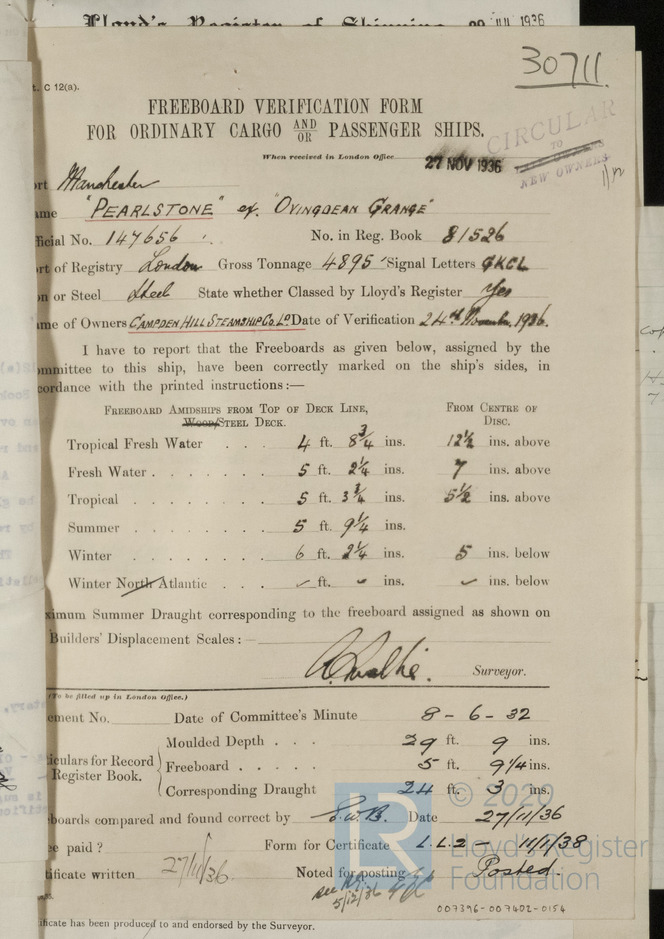 Lloyd's Register of Shipping
30711.
C 12(a).
FREEBOARD VERIFICATION FORM
FOR ORDINARY CARGO AND/OR PASSENGER SHIPS.
CIRCULAR
TO
NEW OWNERS
When received in London Office
27 NOV 1936
ort Manchester
ame "PEARLSTONE" ex "OVINGDEAN GRANGE"
ficial No. 147656 No. in Reg. Book 81526
rt of Registry London Gross Tonnage 4895 Signal Letters GKCL
n or Steel Steel State whether Classed by Lloyd's Register Yes
me of Owners CAMPDEN HILL STEAMSHIP CO. LD Date of Verification 24th November, 1936.
I have to report that the Freeboards as given below, assigned by the
ommittee to this ship, have been correctly marked on the ship's sides, in
cordance with the printed instructions:—
FREEBOARD AMIDSHIPS FROM TOP OF DECK LINE, FROM CENTRE OF
Wood/STEEL DECK. DISC.
Tropical Fresh Water . . . 4 ft. 8 3/4 ins. 12½ ins. above
Fresh Water . . . . . . . 5 ft. 2¼ ins. 7 ins. above
Tropical . . . . . . . . 5 ft. 3¾ ins. 5½ ins. above
Summer . . . . . . . . 5 ft. 9¼ ins.
Winter . . . . . . . . 6 ft. 2¼ ins. 5 ins. below
Winter North Atlantic . . . ✓ ft. ✓ ins. ✓ ins. below
ximum Summer Draught corresponding to the freeboard assigned as shown on
Builders' Displacement Scales :—
Surveyor.
(To be filled up in London Office.)
ement No. Date of Committee's Minute 8-6-32
Moulded Depth . . . 29 ft. 9 ins.
iculars for Record
Register Book.
Freeboard . . . . . 5 ft. 9¼ ins.
Corresponding Draught 24 ft. 3 ins.
boards compared and found correct by E.W.B. Date 27/11/36
e paid ? Form for Certificate L.L.2 - 11/1/38
tificate written 27/11/36. Noted for posting Posted.
5/12/36
© 2020
Lloyd's Register
Foundation
007396-007402-0154
ificate has been produced to and endorsed by the Surveyor.